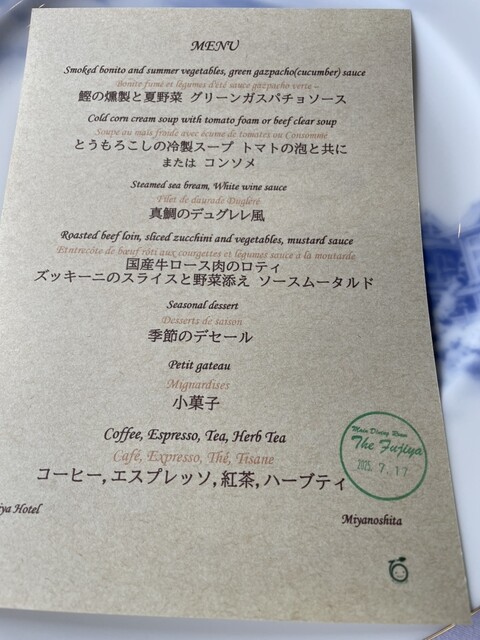 MENU
Smoked bonito and summer vegetables, green gazpacho(cucumber) sauce
Bonito fumé et légumes d'été sauce gazpacho verte –
鰹の燻製と夏野菜 グリーンガスパチョソース
Cold corn cream soup with tomato foam or beef clear soup
Soupe au maïs froide avec écume de tomates ou Consommé
とうもろこしの冷製スープ トマトの泡と共に
または コンソメ
Steamed sea bream, White wine sauce
Filet de daurade Dugléré
真鯛のデュグレレ風
Roasted beef loin, sliced zucchini and vegetables, mustard sauce
Entrecôte de bœuf rôti aux courgettes et légumes sauce à la moutarde
国産牛ロース肉のロティ
ズッキーニのスライスと野菜添え ソースムータルド
Seasonal dessert
Desserts de saison
季節のデセール
Petit gateau
Mignardises
小菓子
Coffee, Espresso, Tea, Herb Tea
Café, Expresso, Thé, Tisane
コーヒー, エスプレッソ, 紅茶, ハーブティ
Main Dining Room
The Fujiya
2025. 7. 17
iya Hotel
Miyanoshita